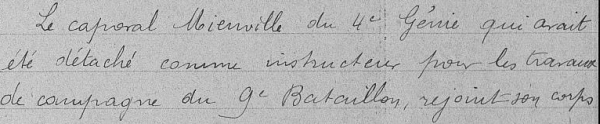 Le caporal Mienville du 4e Génie qui avait
été détaché comme instructeur pour les travaux
de campagne du 9e Bataillon, rejoint son corps